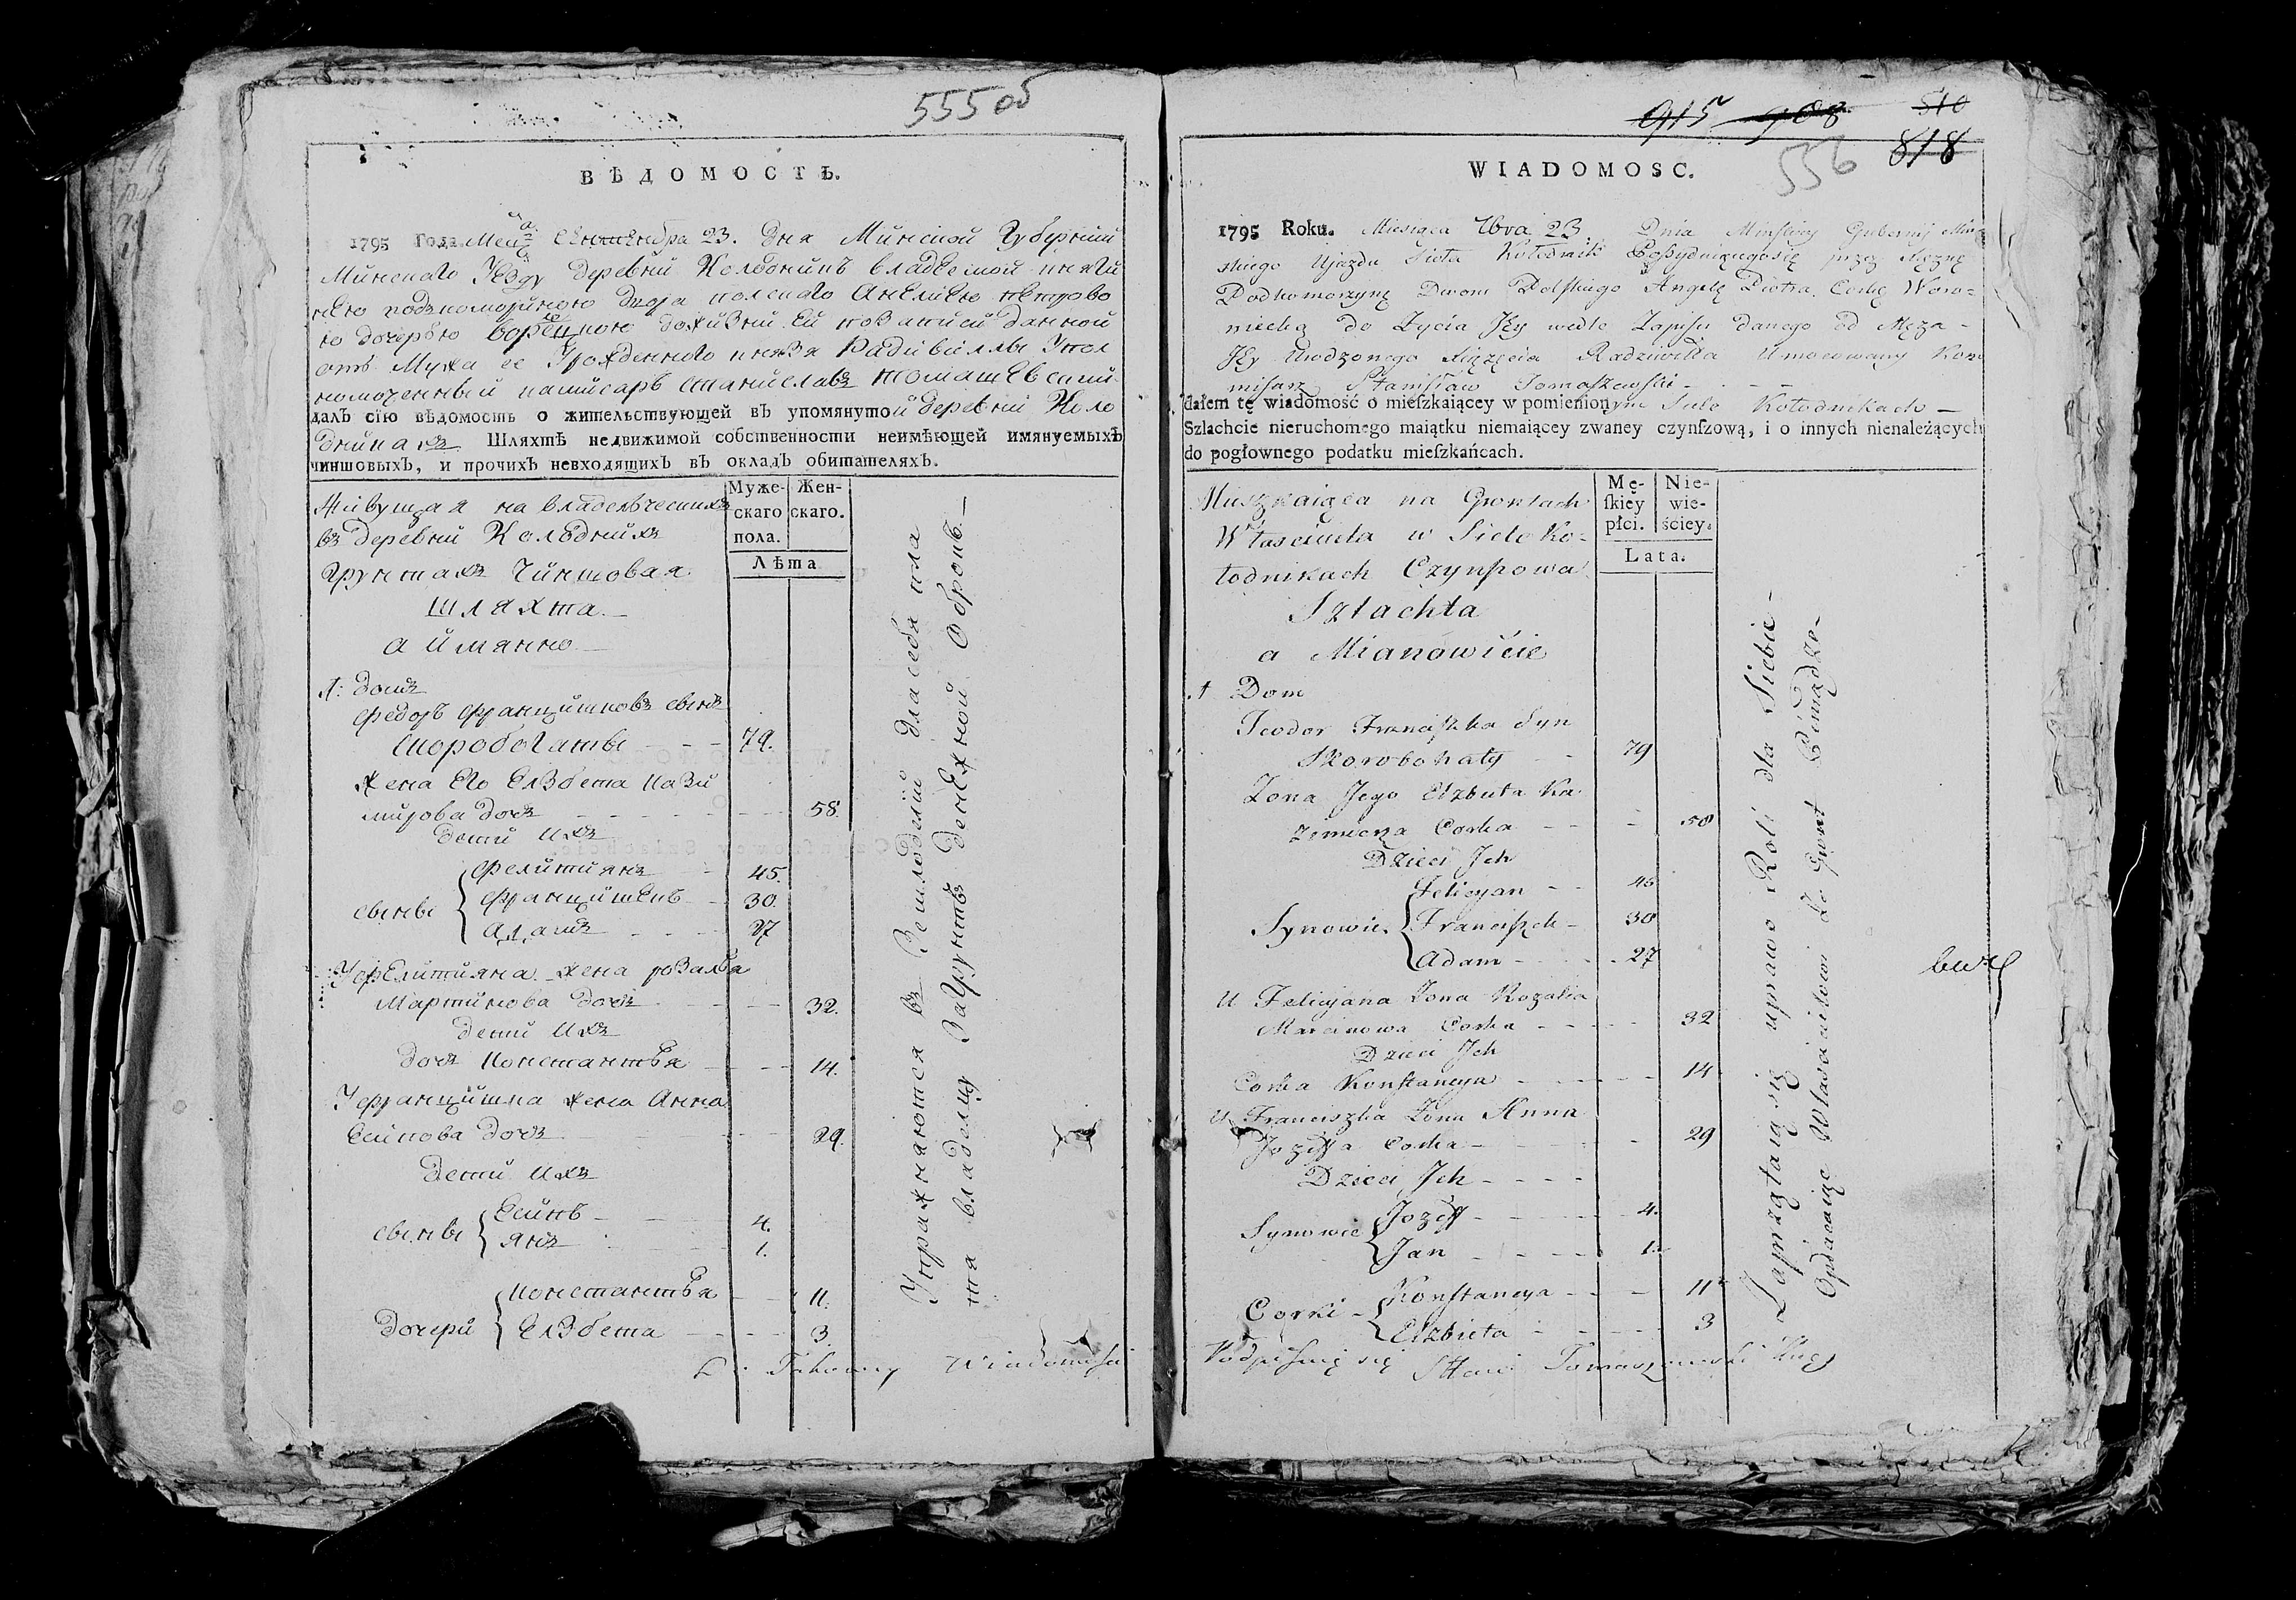 555 об
ВѢДОМОСТЬ.
1795 Года. Меся: Сентебра 23. Дня Минской Губернии
Минскаго Уезду Деревни Колодникъ владеемой княги
нею подкоморйною двора полскаго Ангелею петрово
ю дочерью доживотни Ей позаписи данной
отъ Мужа ее Урожденнаго князя Радивилла Упол
номоченный камисаръ Станиславъ томашевский
далъ сію вѣдомость о жительствующей въ упомянутой деревни Коло
дникахъ Шляхтѣ недвижимой собственности неимѣющей имянуемыхъ
чиншовыхъ, и прочихъ невходящихъ въ окладъ обитателяхъ.
Муже-скаго пола.
Жен-скаго.
Лѣта
Живущая на владелческихъ
въ деревни Колодникъ
Грунтахъ Чиншовая
шляхта.
а имянно
1: домъ
Федоръ францишковъ сынъ
Скоробогаты - - 79.
жена Его Елзбета кази
мирова дочъ - - 58.
дети ихъ
сыны
фелитиянъ 45.
францишекъ 30.
Адамъ 27
У фелитияна жена розаля
Мартинова дочъ 32.
дети ихъ
дочъ константья 14.
У францишка жена Анна
Есипова дочъ 29.
дети ихъ
сыны
Есипъ 4.
янъ 1.
дочери
константья 11.
Елзбета 3.
Упражняются въ Земледелiи длясебя пла
тя владелцу Загрунтъ денежной Обронъ. —
Takowey Wiadomosci
915 908 510
556 818
WIADOMOSC.
1795 Roku. Miesiąca 7bra 23. Dnia Minskiey Gubernij Min
skiego Ujazdu Sioła Kołodnik Possyduiącegosię przez Xięznę
Podkomorzynę Dworu Polskiego Angelę Piotra Corkę Woro=
niecką do Życia Jey wedle Zapisu danego od Męza -
Jey Urodzonego Xiązęcia Radziwiłła Umocowany Kom
misarz Stanisław Tomaszewski - - -
dałem tę wiadomość o mieszkaiącey w pomienionym Siele Kołodnikach —
Szlachcie nieruchomego maiątku niemaiącey zwaney czynszową, i o innych nienależących
do pogłownego podatku mieszkańcach.
Mę-skiey płci.
Nie-wie-ściey.
Lata.
Mieszkaiąca na Gruntach
Własciciela w Siele Ko-
łodnikach Czynszowa
Szlachta
a Mianowićie
1 Dom
Teodor Franciszka Syn
Skorobohaty - 79
Zona Jego Elzbieta Ka
zimierza Corka - - 58
Dzieci Jch
Synowie
Felicyan - - 45
Franciszek - 30
Adam - - 27
U Felicyana Zona Rozalia
Marcinowa Corka - - 32
Dzieci Jch
Corka Konstancya - - 14
U Franciszka Zona Anna
Jozeffa Corka - - 29
Dzieci Jch - - -
Synowie
Jozeff - - 4.
Jan - - 1.
Corki -
Konstancya - - 11
Elzbieta - - 3
Zaprzątaią się uprawo Roli dla Siebie -
Opłacaiąc Własciciełowi Za Grunt Pieniądze -
Podpisuię się Tomaszewski